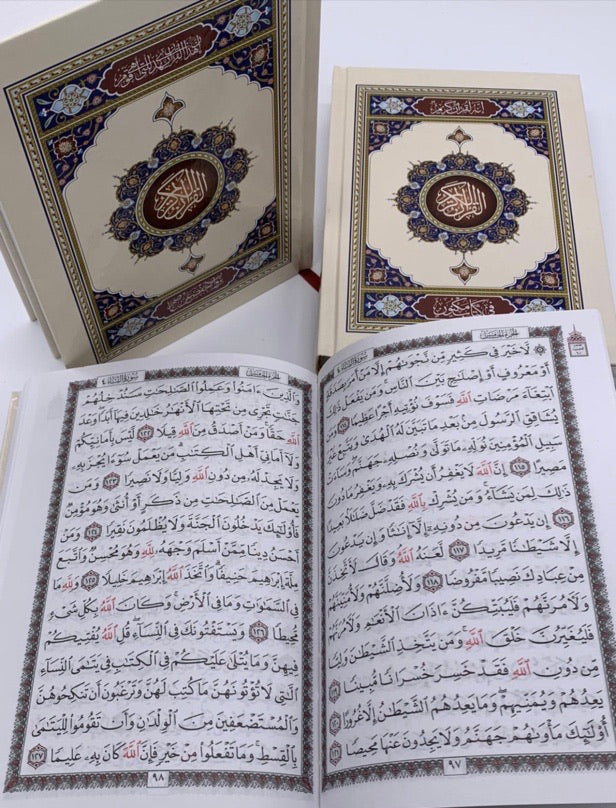 إن هذا القرآن يهدي للتي هي أقوم
القرآن الكريم
إنه لقرآن كريم
القرآن الكريم
في كتاب مكنون
الجزء الخامس
سورة النساء ٤
۞ لَّا خَيْرَ فِي كَثِيرٍ مِّن نَّجْوَىٰهُمْ إِلَّا مَنْ أَمَرَ بِصَدَقَةٍ
أَوْ مَعْرُوفٍ أَوْ إِصْلَٰحٍۭ بَيْنَ ٱلنَّاسِ وَمَن يَفْعَلْ ذَٰلِكَ
ٱبْتِغَآءَ مَرْضَاتِ ٱللَّهِ فَسَوْفَ نُؤْتِيهِ أَجْرًا عَظِيمًا ١١٤ وَمَن
يُشَاقِقِ ٱلرَّسُولَ مِنۢ بَعْدِ مَا تَبَيَّنَ لَهُ ٱلْهُدَىٰ وَيَتَّبِعْ غَيْرَ
سَبِيلِ ٱلْمُؤْمِنِينَ نُوَلِّهِۦ مَا تَوَلَّىٰ وَنُصْلِهِۦ جَهَنَّمَ وَسَآءَتْ
مَصِيرًا ١١٥ إِنَّ ٱللَّهَ لَا يَغْفِرُ أَن يُشْرَكَ بِهِۦ وَيَغْفِرُ مَا دُونَ
ذَٰلِكَ لِمَن يَشَآءُ وَمَن يُشْرِكْ بِٱللَّهِ فَقَدْ ضَلَّ ضَلَٰلًۢا بَعِيدًا
١١٦ إِن يَدْعُونَ مِن دُونِهِۦٓ إِلَّآ إِنَٰثًا وَإِن يَدْعُونَ
إِلَّا شَيْطَٰنًا مَّرِيدًا ١١٧ لَّعَنَهُ ٱللَّهُ وَقَالَ لَأَتَّخِذَنَّ
مِنْ عِبَادِكَ نَصِيبًا مَّفْرُوضًا ١١٨ وَلَأُضِلَّنَّهُمْ وَلَأُمَنِّيَنَّهُمْ
وَلَءَامُرَنَّهُمْ فَلَيُبَتِّكُنَّ ءَاذَانَ ٱلْأَنْعَٰمِ وَلَءَامُرَنَّهُمْ
فَلَيُغَيِّرُنَّ خَلْقَ ٱللَّهِ وَمَن يَتَّخِذِ ٱلشَّيْطَٰنَ وَلِيًّا
مِّن دُونِ ٱللَّهِ فَقَدْ خَسِرَ خُسْرَانًا مُّبِينًا
يَعِدُهُمْ وَيُمَنِّيهِمْ وَمَا يَعِدُهُمُ ٱلشَّيْطَٰنُ إِلَّا غُرُورًا
أُو۟لَٰٓئِكَ مَأْوَىٰهُمْ جَهَنَّمُ وَلَا يَجِدُونَ عَنْهَا مَحِيصًا
٩٧
الجزء الخامس
سورة النساء ٤
وَٱلَّذِينَ ءَامَنُوا۟ وَعَمِلُوا۟ ٱلصَّٰلِحَٰتِ سَنُدْخِلُهُمْ
جَنَّٰتٍ تَجْرِى مِن تَحْتِهَا ٱلْأَنْهَٰرُ خَٰلِدِينَ فِيهَآ أَبَدًا وَعْدَ
ٱللَّهِ حَقًّا وَمَنْ أَصْدَقُ مِنَ ٱللَّهِ قِيلًا ١٢٢ لَّيْسَ بِأَمَانِيِّكُمْ
وَلَآ أَمَانِىِّ أَهْلِ ٱلْكِتَٰبِ مَن يَعْمَلْ سُوٓءًا يُجْزَ بِهِۦ
وَلَا يَجِدْ لَهُۥ مِن دُونِ ٱللَّهِ وَلِيًّا وَلَا نَصِيرًا ١٢٣ وَمَن
يَعْمَلْ مِنَ ٱلصَّٰلِحَٰتِ مِن ذَكَرٍ أَوْ أُنثَىٰ وَهُوَ مُؤْمِنٌ
فَأُو۟لَٰٓئِكَ يَدْخُلُونَ ٱلْجَنَّةَ وَلَا يُظْلَمُونَ نَقِيرًا ١٢٤ وَمَنْ
أَحْسَنُ دِينًا مِّمَّنْ أَسْلَمَ وَجْهَهُۥ لِلَّهِ وَهُوَ مُحْسِنٌ وَٱتَّبَعَ
مِلَّةَ إِبْرَٰهِيمَ حَنِيفًا وَٱتَّخَذَ ٱللَّهُ إِبْرَٰهِيمَ خَلِيلًا ١٢٥ وَلِلَّهِ مَا
فِى ٱلسَّمَٰوَٰتِ وَمَا فِى ٱلْأَرْضِ وَكَانَ ٱللَّهُ بِكُلِّ شَىْءٍ
مُّحِيطًا ١٢٦ وَيَسْتَفْتُونَكَ فِى ٱلنِّسَآءِ قُلِ ٱللَّهُ يُفْتِيكُمْ
فِيهِنَّ وَمَا يُتْلَىٰ عَلَيْكُمْ فِى ٱلْكِتَٰبِ فِى يَتَٰمَى ٱلنِّسَآءِ
ٱلَّٰتِى لَا تُؤْتُونَهُنَّ مَا كُتِبَ لَهُنَّ وَتَرْغَبُونَ أَن تَنكِحُوهُنَّ
وَٱلْمُسْتَضْعَفِينَ مِنَ ٱلْوِلْدَٰنِ وَأَن تَقُومُوا۟ لِلْيَتَٰمَىٰ
بِٱلْقِسْطِ وَمَا تَفْعَلُوا۟ مِنْ خَيْرٍ فَإِنَّ ٱللَّهَ كَانَ بِهِۦ عَلِيمًا ١٢٧
٩٨